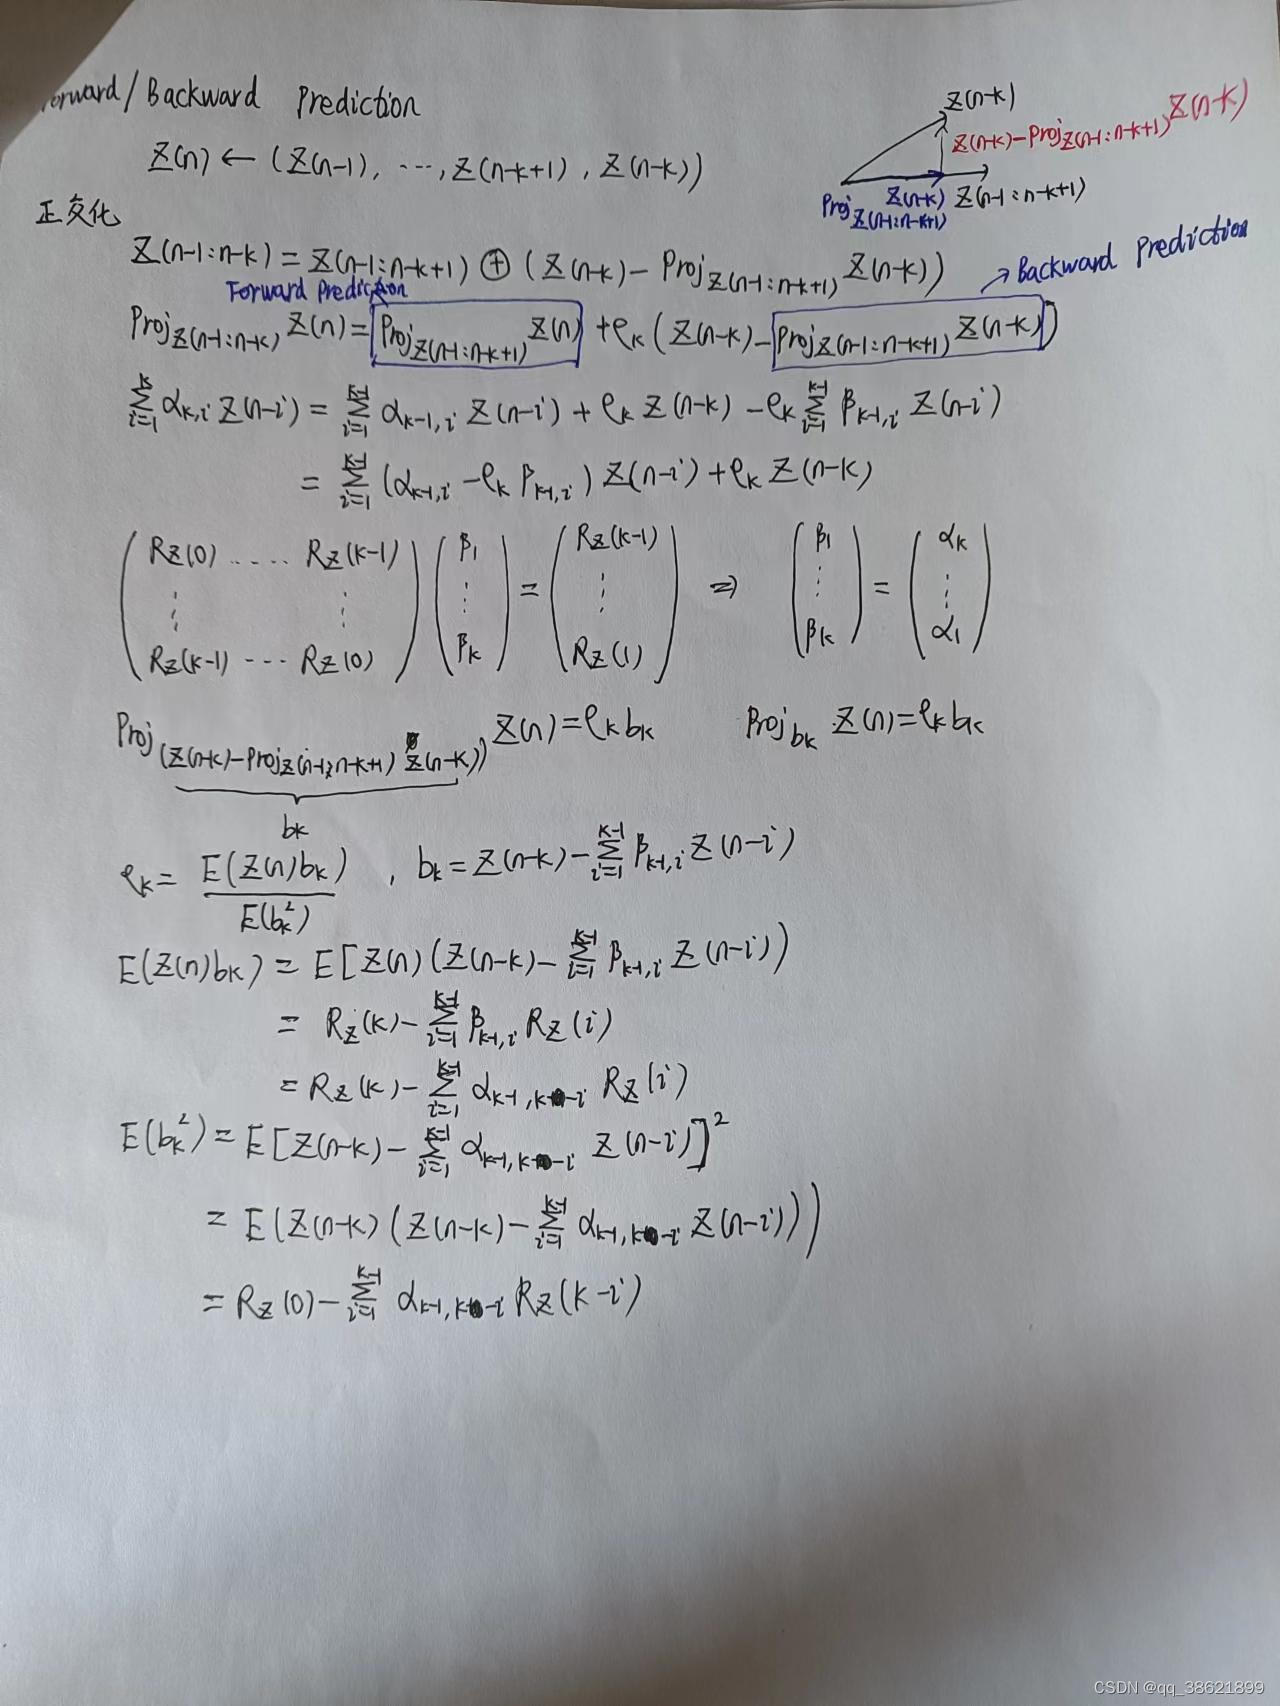 Forward/Backward Prediction
Z(n) ← (Z(n-1), ..., Z(n-k+1), Z(n-k))
Z(n-k)
Z(n-k)-Proj_{Z(n-1:n-k+1)} Z(n-k)
Proj_{Z(n-1:n-k+1)} Z(n-k)
Z(n-1:n-k+1)
正交化
Z(n-1:n-k) = Z(n-1:n-k+1) ⊕ (Z(n-k) - Proj_{Z(n-1:n-k+1)} Z(n-k))
Forward prediction
Backward prediction
Proj_{Z(n-1:n-k)} Z(n) = Proj_{Z(n-1:n-k+1)} Z(n) + ρ_k (Z(n-k) - Proj_{Z(n-1:n-k+1)} Z(n-k))
∑_{i=1}^{k} α_{k,i} Z(n-i) = ∑_{i=1}^{k-1} α_{k-1,i} Z(n-i) + ρ_k Z(n-k) - ρ_k ∑_{i=1}^{k-1} β_{k-1,i} Z(n-i)
= ∑_{i=1}^{k-1} (α_{k-1,i} - ρ_k β_{k-1,i}) Z(n-i) + ρ_k Z(n-k)
R_Z(0) ..... R_Z(k-1) β_1 R_Z(k-1) β_1 α_k
⋮ ⋮ ⋮ = ⋮ ⇒ ⋮ = ⋮
R_Z(k-1) ... R_Z(0) β_k R_Z(1) β_k α_1
Proj_{(Z(n-k)-Proj_{Z(n-1:n-k+1)} Z(n-k))} Z(n) = ρ_k b_k Proj_{b_k} Z(n) = ρ_k b_k
b_k
ρ_k = E(Z(n)b_k) / E(b_k^2) , b_k = Z(n-k) - ∑_{i=1}^{k-1} β_{k-1,i} Z(n-i)
E(Z(n)b_k) = E[Z(n)(Z(n-k) - ∑_{i=1}^{k-1} β_{k-1,i} Z(n-i))
= R_Z(k) - ∑_{i=1}^{k-1} β_{k-1,i} R_Z(i)
= R_Z(k) - ∑_{i=1}^{k-1} α_{k-1,k-i} R_Z(i)
E(b_k^2) = E[Z(n-k) - ∑_{i=1}^{k-1} α_{k-1,k-i} Z(n-i)]^2
= E(Z(n-k)(Z(n-k) - ∑_{i=1}^{k-1} α_{k-1,k-i} Z(n-i)))
= R_Z(0) - ∑_{i=1}^{k-1} α_{k-1,k-i} R_Z(k-i)
CSDN @qq_38621899